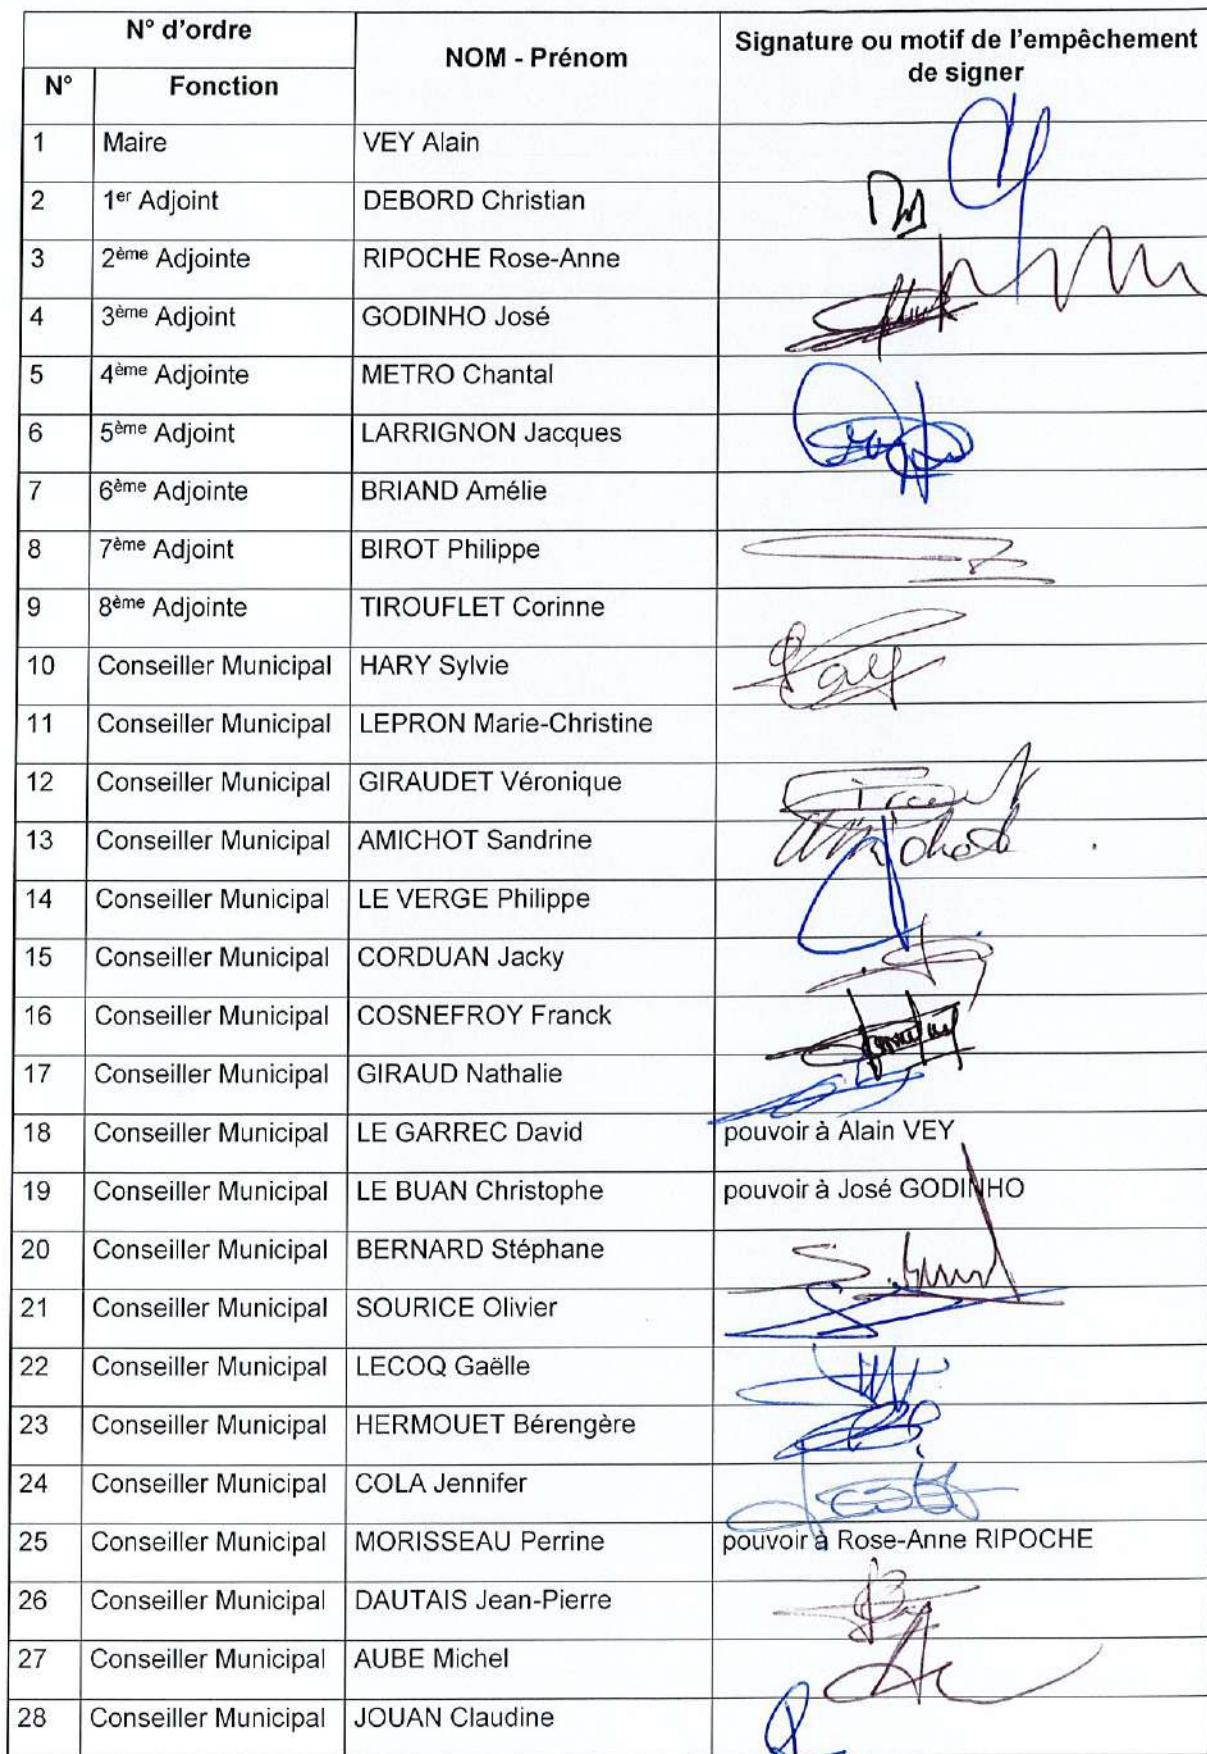 N° d'ordre
NOM - Prénom
Signature ou motif de l'empêchement
de signer
N° Fonction
1 Maire VEY Alain
2 1er Adjoint DEBORD Christian
3 2ème Adjointe RIPOCHE Rose-Anne
4 3ème Adjoint GODINHO José
5 4ème Adjointe METRO Chantal
6 5ème Adjoint LARRIGNON Jacques
7 6ème Adjointe BRIAND Amélie
8 7ème Adjoint BIROT Philippe
9 8ème Adjointe TIROUFLET Corinne
10 Conseiller Municipal HARY Sylvie
11 Conseiller Municipal LEPRON Marie-Christine
12 Conseiller Municipal GIRAUDET Véronique
13 Conseiller Municipal AMICHOT Sandrine
14 Conseiller Municipal LE VERGE Philippe
15 Conseiller Municipal CORDUAN Jacky
16 Conseiller Municipal COSNEFROY Franck
17 Conseiller Municipal GIRAUD Nathalie
18 Conseiller Municipal LE GARREC David pouvoir à Alain VEY
19 Conseiller Municipal LE BUAN Christophe pouvoir à José GODINHO
20 Conseiller Municipal BERNARD Stéphane
21 Conseiller Municipal SOURICE Olivier
22 Conseiller Municipal LECOQ Gaëlle
23 Conseiller Municipal HERMOUET Bérengère
24 Conseiller Municipal COLA Jennifer
25 Conseiller Municipal MORISSEAU Perrine pouvoir à Rose-Anne RIPOCHE
26 Conseiller Municipal DAUTAIS Jean-Pierre
27 Conseiller Municipal AUBE Michel
28 Conseiller Municipal JOUAN Claudine